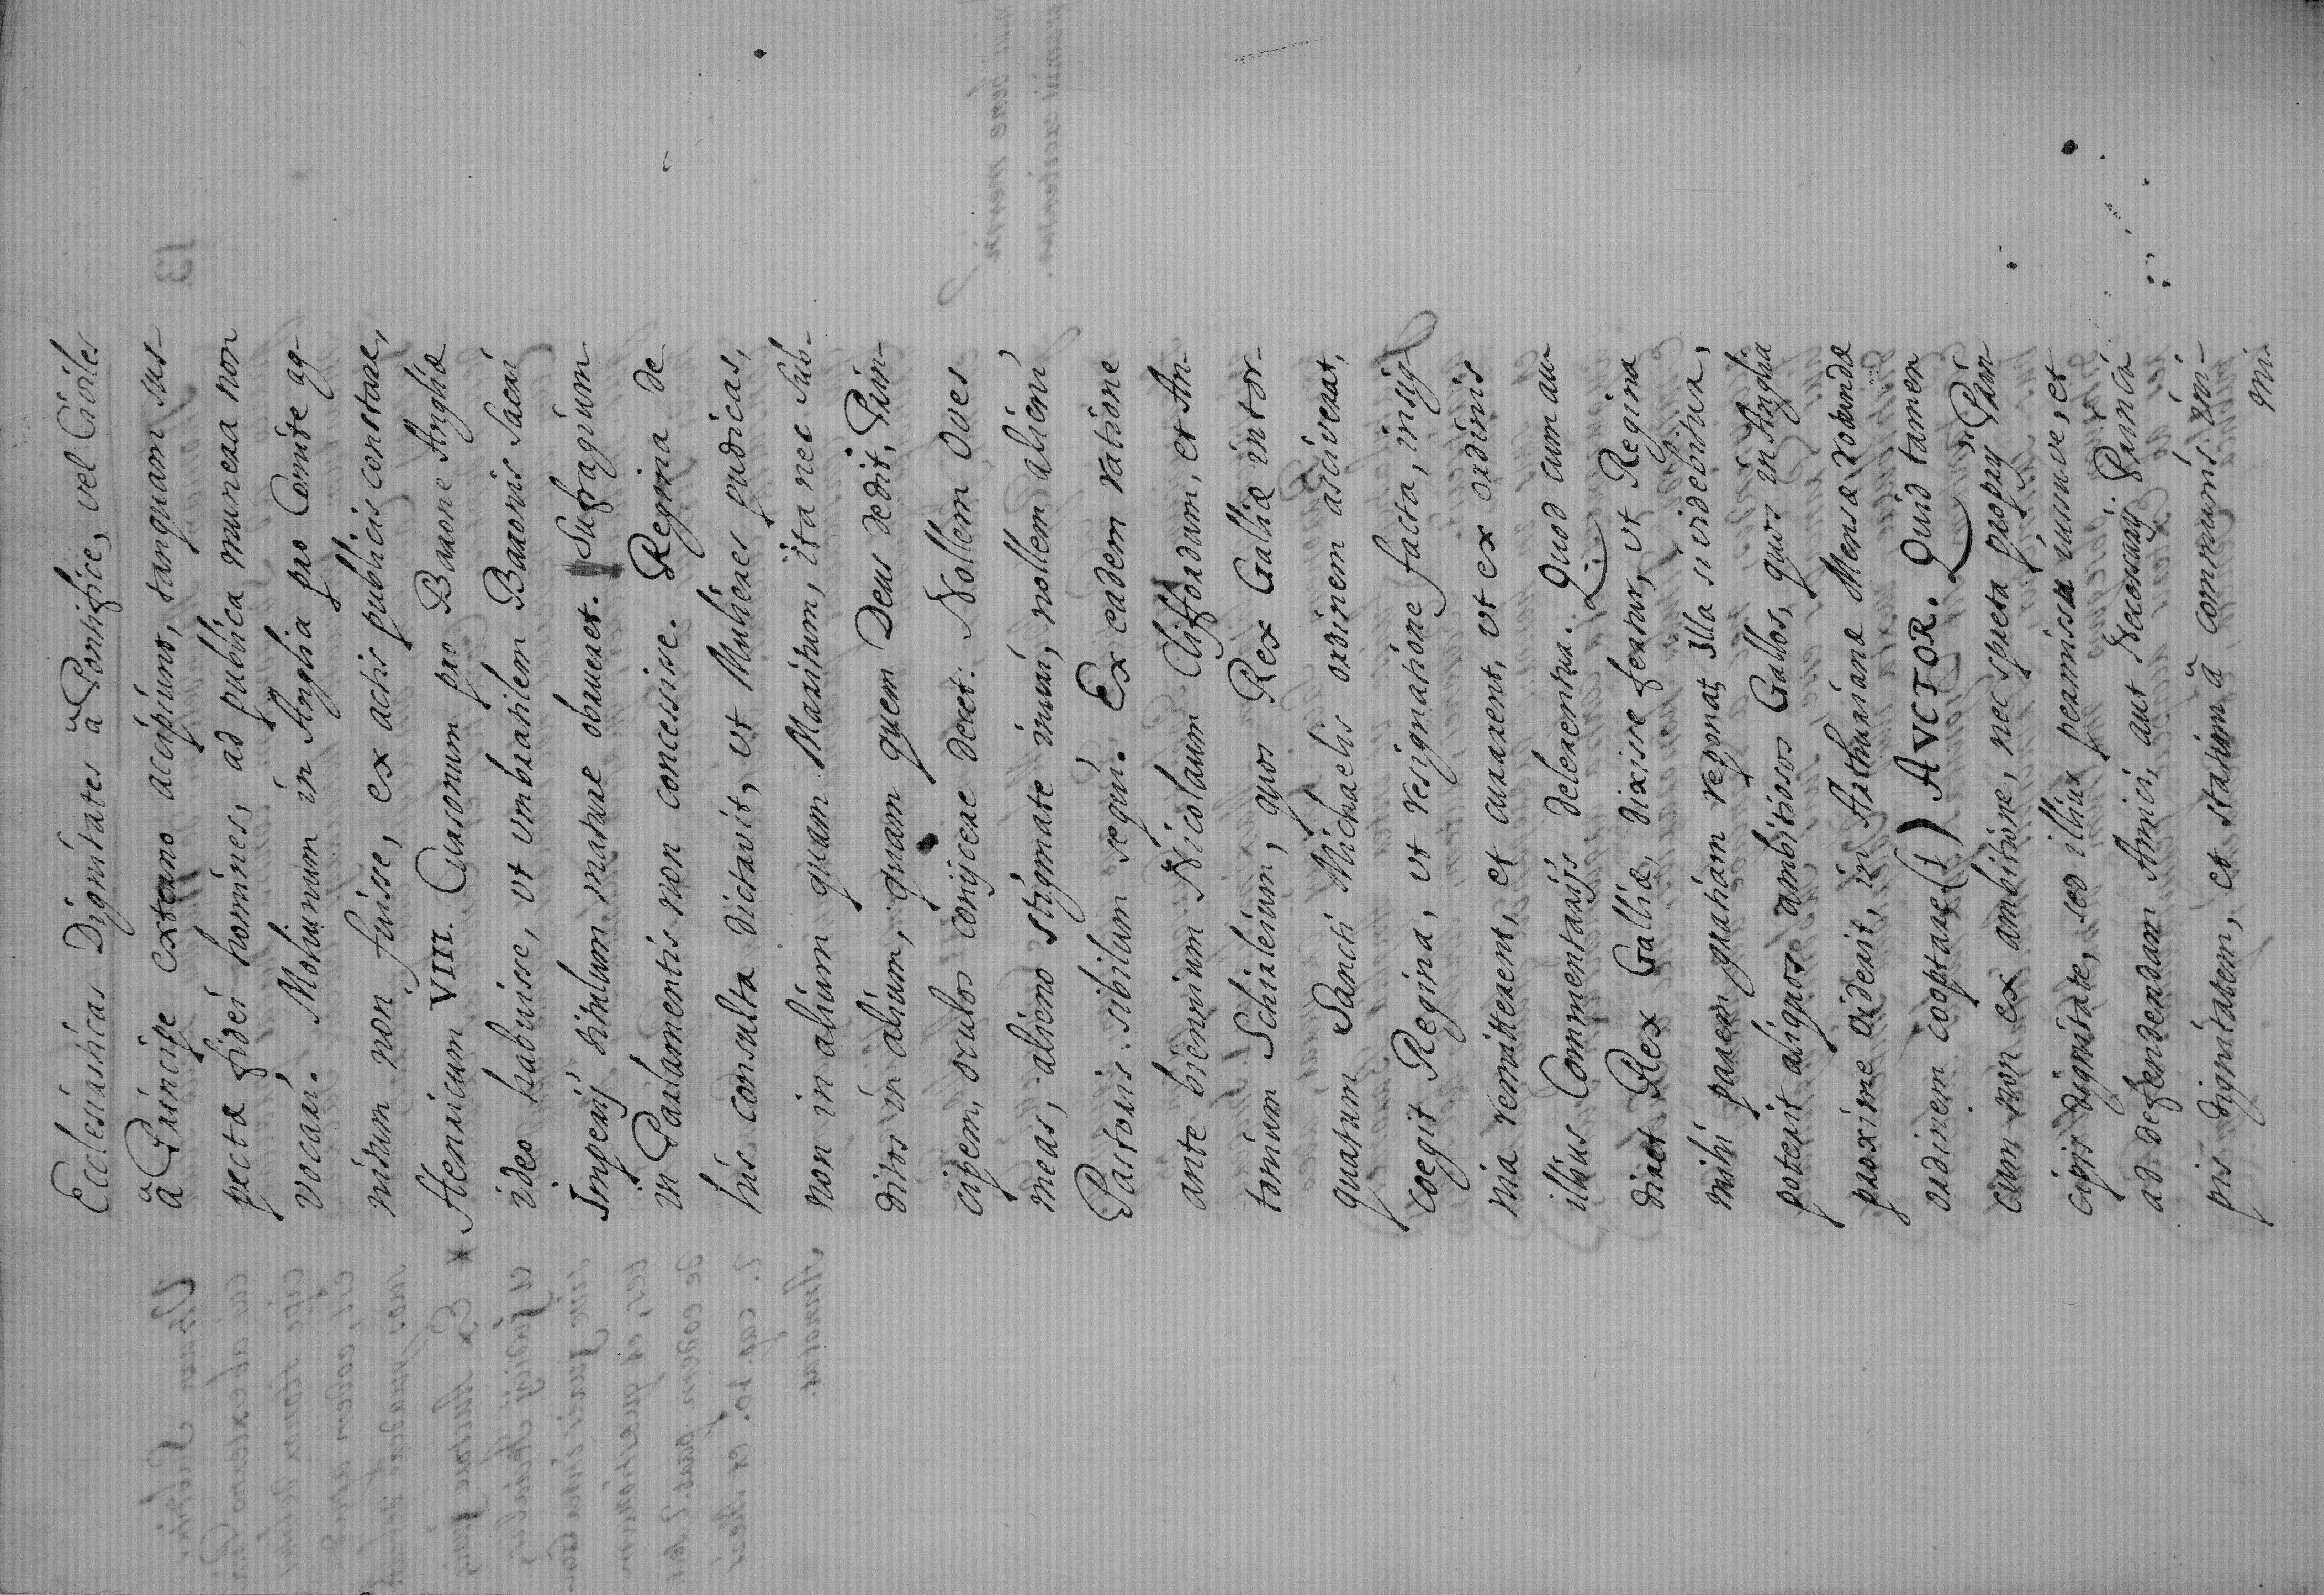 Ecclesiasticas Dignitates à Pontifice, vel Civiles
à Principe externo accipiunt, tanquam sus-
pectæ fidei homines, ad publica munera non
vocari. Mohunum in Anglia pro Comite ag-
nitum non fuisse, ex actis publicis constare,
* Henricum VIII. Cursonum pro Barone Angliæ
ideo habuisse, ut umbratilem Baronis Sacri
Imperij titulum mature obrueret. Sufragium
in Parlamentis non concessisse. Regina de
his consulta dictavit, ut Mulieres pudicas,
non in alium quam Maritum, ita nec sub-
ditos in alium, quam quem Deus dedit, Prin-
cipem, oculos conijcere decet. Nollem oves
meas, alieno stigmate inuri, nollem alieni
Pastoris sibilum sequi. Ex eadem ratione
ante biennium Nicolaum Cliffordum, et An-
tonium Schirleium, quos Rex Galliæ in tor-
quatum Sancti Michaelis ordinem asciverat,
coegit Regina, ut resignatione facta, insig-
nia remitterent, et curarent, ut ex ordinis
illius Commentarijs delerentur. Quod cum au
diret Rex Galliæ, dixisse fertur, ut Regina
mihi parem gratiam reponat illa si videbitur,
poterit aliquos ambitiosos Gallos, quos in Anglia
proxime viderit, in Arthurianæ Mensæ rotundæ
ordinem cooptare(1) AVCTOR. Quid tamen
cum non ex ambitione, nec spreta proprij Prin
cipis dignitate, seo illius permissu
ad defendendam Amici, aut Principi
pis dignitatem, et statum à communi ini-
mi
13